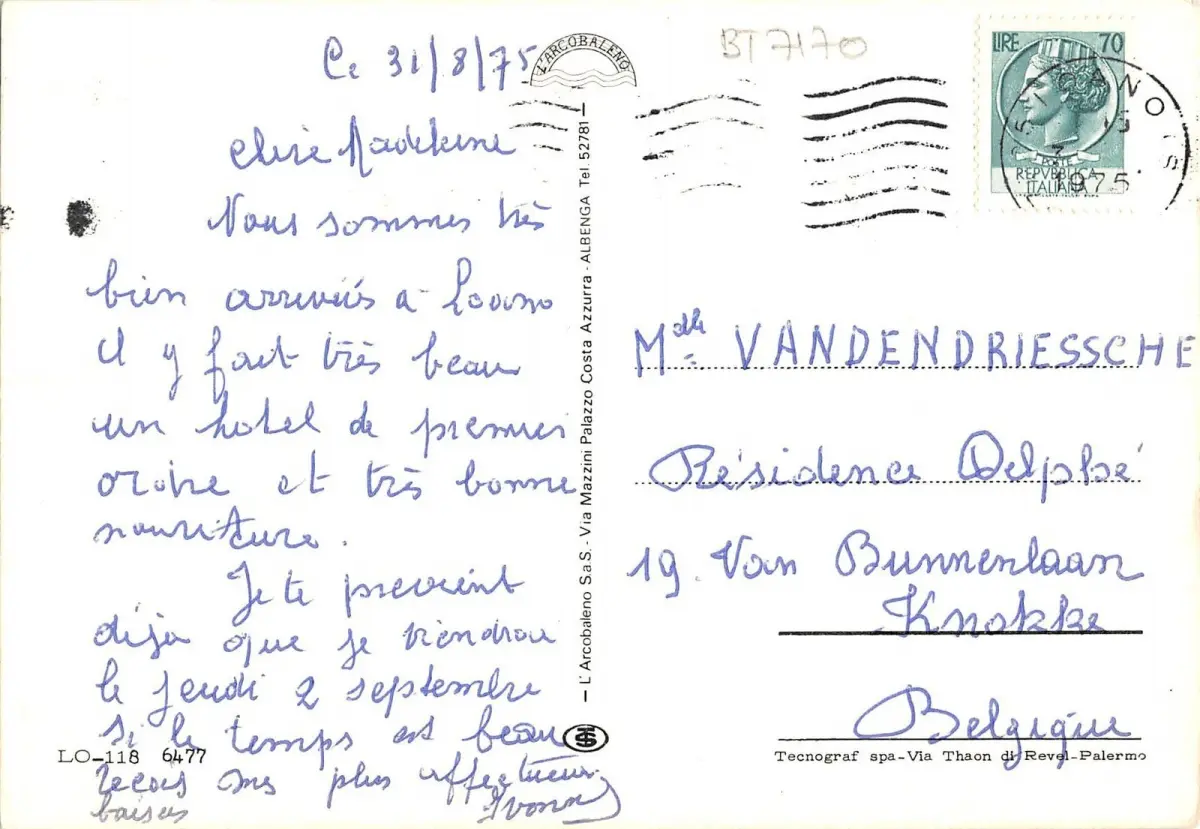 Ce 31/8/75
L'ARCOBALENO
BT7170
LIRE 70
POSTE
REPVBBLICA
ITALIANA
1975
chère Madeleine
Nous sommes très
bien arrivées à Loano
il y fait très beau
un hotel de premier
ordre et très bonne
nouriture.
Je te previent
déja que je viendrai
le jeudi 2 septembre
si le temps est beau
recois mes plus affectueux
baisers
Yvonne
LO-118 6477
— L'Arcobaleno S.a.S. - Via Mazzini Palazzo Costa Azzurra - ALBENGA Tel. 52781 —
Mdlle VANDENDRIESSCHE
Résidence Delphé
19. Van Bunnenlaan
Knokke
Belgique
Tecnograf spa-Via Thaon di Revel-Palermo